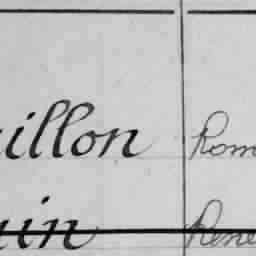 illon Rom
in Rene